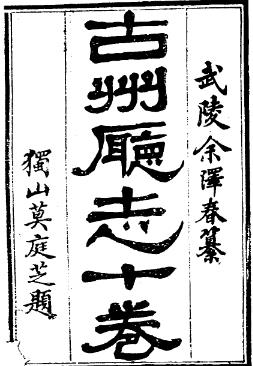 武陵余澤春纂
古州廳志十卷
獨山莫庭芝題